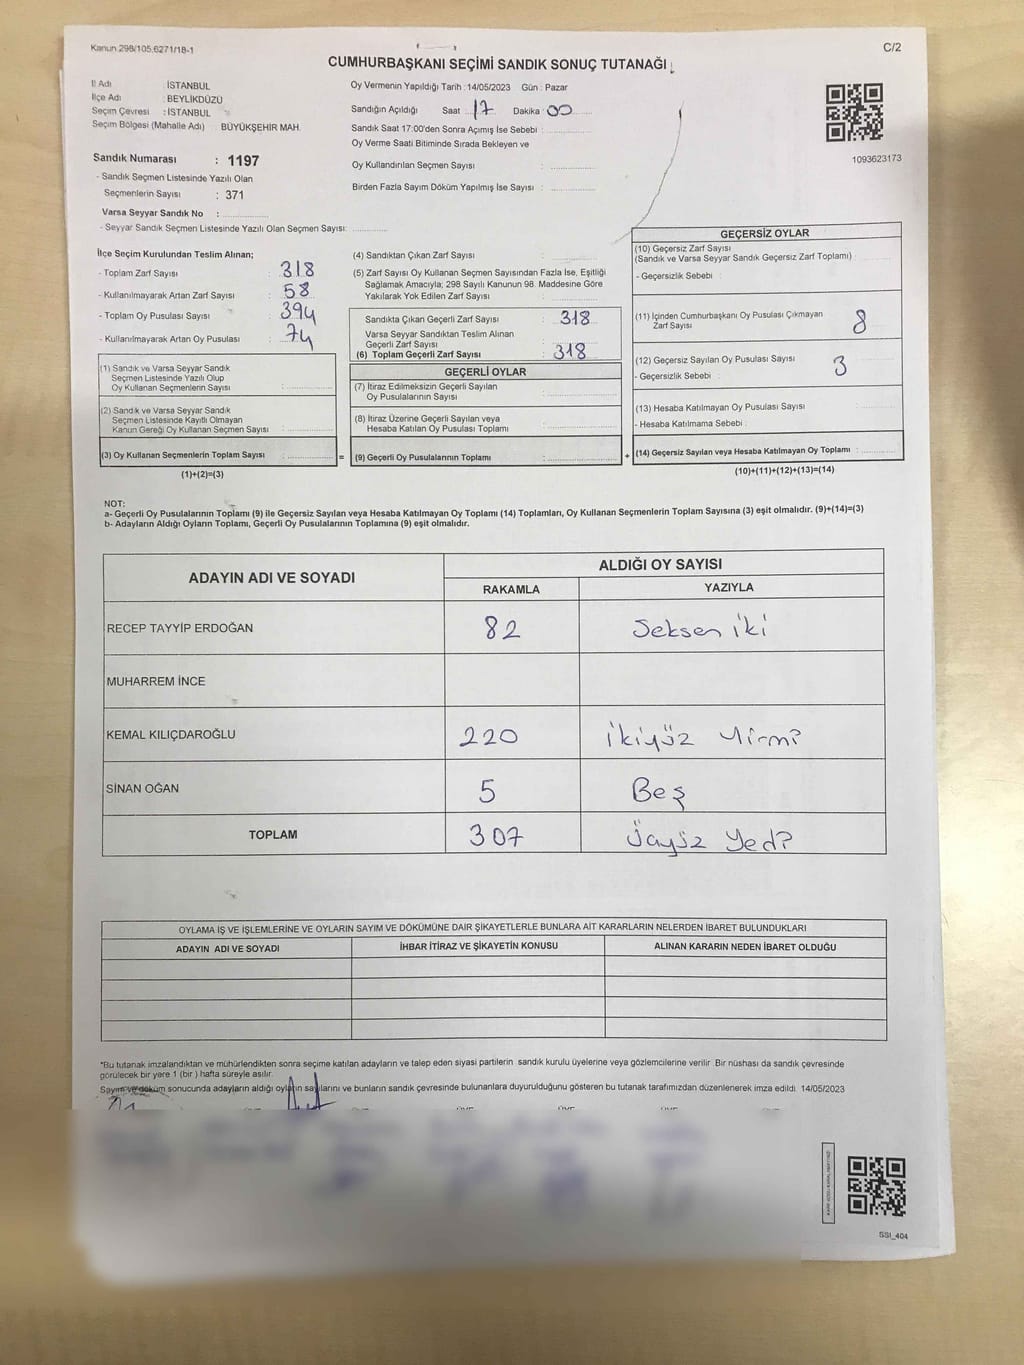 Kanun 298/105.6271/18-1
C/2
CUMHURBAŞKANI SEÇİMİ SANDIK SONUÇ TUTANAĞI
İl Adı : İSTANBUL
İlçe Adı : BEYLİKDÜZÜ
Seçim Çevresi : İSTANBUL
Seçim Bölgesi (Mahalle Adı) BÜYÜKŞEHİR MAH.
Sandık Numarası : 1197
- Sandık Seçmen Listesinde Yazılı Olan
Seçmenlerin Sayısı : 371
Varsa Seyyar Sandık No :
- Seyyar Sandık Seçmen Listesinde Yazılı Olan Seçmen Sayısı:
Oy Vermenin Yapıldığı Tarih : 14/05/2023 Gün : Pazar
Sandığın Açıldığı Saat : 17 Dakika : 00
Sandık Saat 17:00'den Sonra Açımış İse Sebebi :
Oy Verme Saati Bitiminde Sırada Bekleyen ve
Oy Kullandırılan Seçmen Sayısı :
Birden Fazla Sayım Döküm Yapılmış İse Sayısı :
1093623173
İlçe Seçim Kurulundan Teslim Alınan;
- Toplam Zarf Sayısı : 318
- Kullanılmayarak Artan Zarf Sayısı : 58
- Toplam Oy Pusulası Sayısı : 394
- Kullanılmayarak Artan Oy Pusulası : 74
(1) Sandık ve Varsa Seyyar Sandık
Seçmen Listesinde Yazılı Olup
Oy Kullanan Seçmenlerin Sayısı :
(2) Sandık ve Varsa Seyyar Sandık
Seçmen Listesinde Kayıtlı Olmayan
Kanun Gereği Oy Kullanan Seçmen Sayısı :
(3) Oy Kullanan Seçmenlerin Toplam Sayısı :
(1)+(2)=(3)
=
(4) Sandıktan Çıkan Zarf Sayısı :
(5) Zarf Sayısı Oy Kullanan Seçmen Sayısından Fazla İse, Eşitliği
Sağlamak Amacıyla; 298 Sayılı Kanunun 98. Maddesine Göre
Yakılarak Yok Edilen Zarf Sayısı :
Sandıkta Çıkan Geçerli Zarf Sayısı : 318
Varsa Seyyar Sandıktan Teslim Alınan
Geçerli Zarf Sayısı :
(6) Toplam Geçerli Zarf Sayısı : 318
GEÇERLİ OYLAR
(7) İtiraz Edilmeksizin Geçerli Sayılan
Oy Pusulalarının Sayısı :
(8) İtiraz Üzerine Geçerli Sayılan veya
Hesaba Katılan Oy Pusulası Toplamı :
(9) Geçerli Oy Pusulalarının Toplamı :
+
GEÇERSİZ OYLAR
(10) Geçersiz Zarf Sayısı
(Sandık ve Varsa Seyyar Sandık Geçersiz Zarf Toplamı) :
- Geçersizlik Sebebi :
(11) İçinden Cumhurbaşkanı Oy Pusulası Çıkmayan
Zarf Sayısı : 8
(12) Geçersiz Sayılan Oy Pusulası Sayısı : 3
- Geçersizlik Sebebi :
(13) Hesaba Katılmayan Oy Pusulası Sayısı :
- Hesaba Katılmama Sebebi :
(14) Geçersiz Sayılan veya Hesaba Katılmayan Oy Toplamı :
(10)+(11)+(12)+(13)=(14)
NOT:
a- Geçerli Oy Pusulalarının Toplamı (9) ile Geçersiz Sayılan veya Hesaba Katılmayan Oy Toplamı (14) Toplamları, Oy Kullanan Seçmenlerin Toplam Sayısına (3) eşit olmalıdır. (9)+(14)=(3)
b- Adayların Aldığı Oyların Toplamı, Geçerli Oy Pusulalarının Toplamına (9) eşit olmalıdır.
ADAYIN ADI VE SOYADI
ALDIĞI OY SAYISI
RAKAMLA YAZIYLA
RECEP TAYYİP ERDOĞAN 82 Seksen iki
MUHARREM İNCE
KEMAL KILIÇDAROĞLU 220 ikiyüz Yirmi
SİNAN OĞAN 5 Beş
TOPLAM 307 üçyüz Yedi
OYLAMA İŞ VE İŞLEMLERİNE VE OYLARIN SAYIM VE DÖKÜMÜNE DAİR ŞİKAYETLERLE BUNLARA AİT KARARLARIN NELERDEN İBARET BULUNDUKLARI
ADAYIN ADI VE SOYADI İHBAR İTİRAZ VE ŞİKAYETİN KONUSU ALINAN KARARIN NEDEN İBARET OLDUĞU
*Bu tutanak imzalandıktan ve mühürlendikten sonra seçime katılan adayların ve talep eden siyasi partilerin sandık kurulu üyelerine veya gözlemcilerine verilir. Bir nüshası da sandık çevresinde
görülecek bir yere 1 (bir) hafta süreyle asılır.
Sayım ve döküm sonucunda adayların aldığı oyların sayılarını ve bunların sandık çevresinde bulunanlara duyurulduğunu gösteren bu tutanak tarafımızdan düzenlenerek imza edildi. 14/05/2023
SSI_404